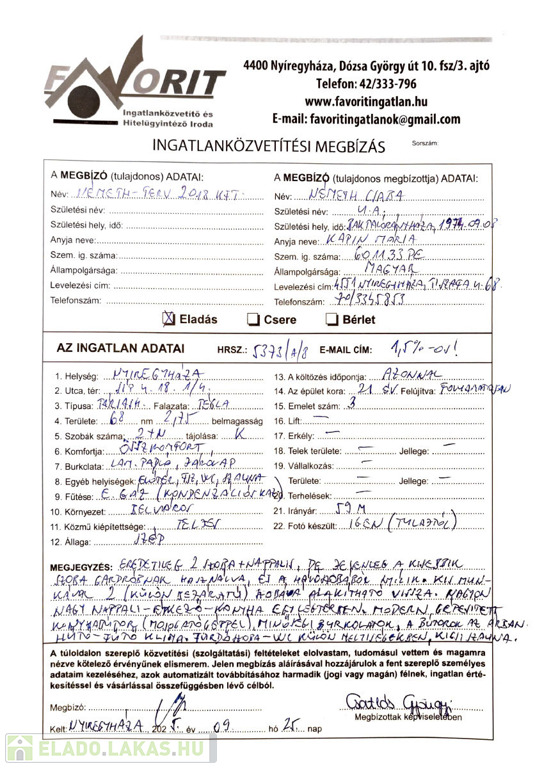 FAVORIT
Ingatlanközvetítő és
Hitelügyintéző Iroda
4400 Nyíregyháza, Dózsa György út 10. fsz/3. ajtó
Telefon: 42/333-796
www.favoritingatlan.hu
E-mail: favoritingatlanok@gmail.com
INGATLANKÖZVETÍTÉSI MEGBÍZÁS Sorszám
A MEGBÍZÓ (tulajdonos) ADATAI:
Név: NÉMETH-TERV 2018 KFT.
Születési név:
Születési hely, idő:
Anyja neve:
Szem. ig. száma:
Állampolgársága:
Levelezési cím:
Telefonszám:
A MEGBÍZÓ (tulajdonos megbízottja) ADATAI:
Név: NÉMETH CSABA
Születési név: U.A.
Születési hely, idő: BAKTALÓRÁNTHÁZA, 1974.09.08
Anyja neve: KAPIN MÁRIA
Szem. ig. száma: 601133PE
Állampolgársága: MAGYAR
Levelezési cím: 4551 NYÍREGYHÁZA, u. 68.
Telefonszám: 70/3345853
X Eladás Csere Bérlet
AZ INGATLAN ADATAI HRSZ.: 5373/A/8 E-MAIL CÍM: 1,5%
1. Helység: NYÍREGYHÁZA
2. Utca, tér: 18. 1/4.
3. Típusa: Falazata: TÉGLA
4. Területe: 68 nm 2,75 belmagasság
5. Szobák száma: 2+N tájolása: K
6. Komfortja: ÖSSZKOMFORT
7. Burkolata: LAM. PADLÓ, JÁRÓLAP
8. Egyéb helyiségek: SZAUNA
9. Fűtése: E. GÁZ (KONDENZÁCIÓS KAZÁN)
10. Környezet: BELVÁROS
11. Közmű kiépítettsége: TELJES
12. Állaga: SZÉP
13. A költözés időpontja: AZONNAL
14. Az épület kora: 21 ÉV Felújítva: FOLYAMATOSAN
15. Emelet szám: 3
16. Lift: –
17. Erkély: –
18. Telek területe: – Jellege: –
19. Vállalkozás: –
Területe: – Jellege: –
20. Terhelések: –
21. Irányár: 59 M
22. Fotó készült: IGEN (TULAJTÓL)
MEGJEGYZÉS: EREDETILEG 2 SZOBA+NAPPALI, DE JELENLEG A KISEBBIK
SZOBA GARDRÓBNAK HASZNÁLVA, ÉS A HÁLÓSZOBÁBÓL NYÍLIK. KIS MUN-
KÁVAL 2 (KÜLÖN BEJÁRATÚ) SZOBÁVÁ ALAKÍTHATÓ VISSZA. NAGYON
NAGY NAPPALI-ÉTKEZŐ-KONYHA EGY LÉGTÉRBEN, MODERN, BEÉPÍTETT
KONYHABÚTOR (MOSOGATÓGÉPPEL), MINŐSÉGI BURKOLATOK, A BÚTOROK AZ ÁRBAN.
HŰTŐ-FŰTŐ KLÍMA, FÜRDŐSZOBA-WC KÜLÖN HELYISÉGEKBEN, KICSI SZAUNA.
A túloldalon szereplő közvetítési (szolgáltatási) feltételeket elolvastam, tudomásul vettem és magamra
nézve kötelező érvényűnek elismerem. Jelen megbízás aláírásával hozzájárulok a fent szereplő személyes
adataim kezeléséhez, azok automatizált továbbításához harmadik (jogi vagy magán) félnek, ingatlan érté-
kesítéssel és vásárlással összefüggésben lévő célból.
Megbízó: Csatlós Györgyi
Megbízottak képviseletében
Kelt: NYÍREGYHÁZA 2025. év 09 hó 25. nap
ELADO.LAKAS.HU